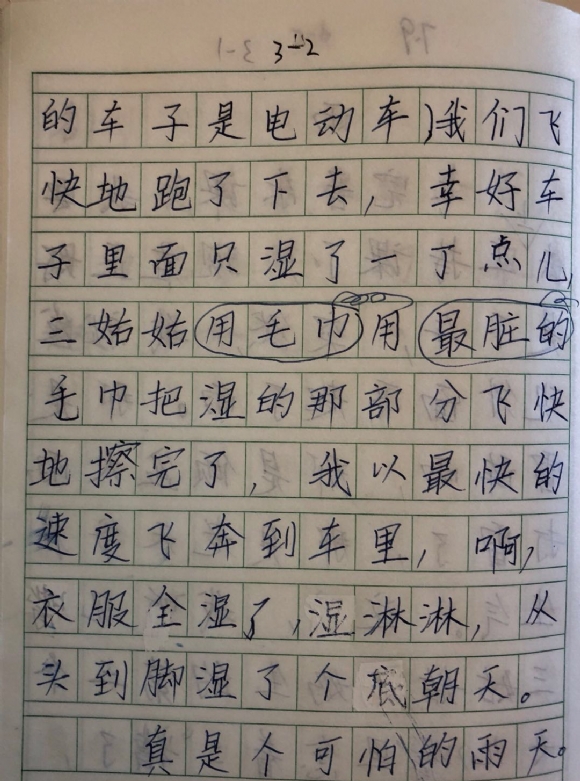 3-2
的车子是电动车，我们飞
快地跑了下去，幸好车
子里面只湿了一丁点儿，
三姑姑用毛巾用最脏的
毛巾把湿的那部分飞快
地擦完了，我以最快的
速度飞奔到车里，啊，
衣服全湿了，湿淋淋，从
头到脚湿了个底朝天。
真是个可怕的雨天。